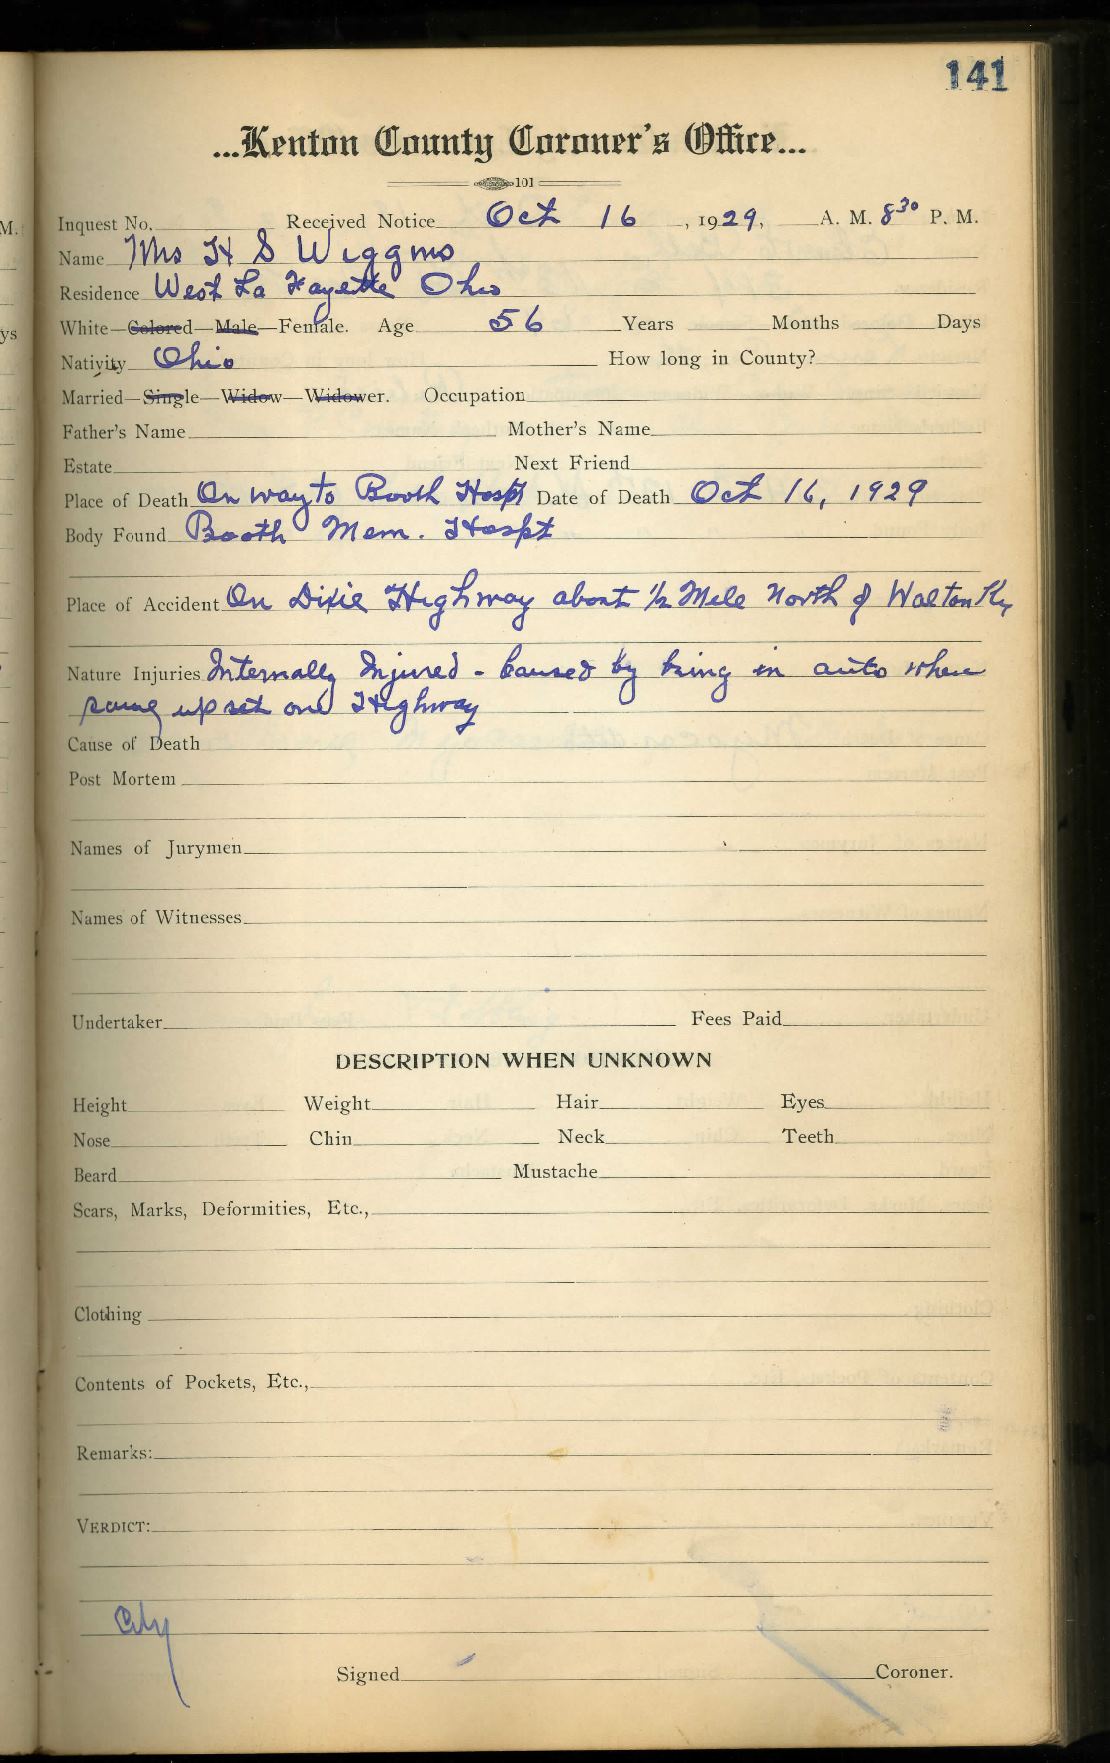 141
...Kenton County Coroner's Office...
101
Inquest No. Received Notice Oct 16, 1929, A. M. 8³⁰ P. M.
Name Mrs H S Wiggins
Residence West La Fayette Ohio
White—Colored—Male—Female. Age 56 Years Months Days
Nativity Ohio How long in County?
Married—Single—Widow—Widower. Occupation
Father's Name Mother's Name
Estate Next Friend
Place of Death On way to Booth Hospt Date of Death Oct 16, 1929
Body Found Booth Mem. Hospt
Place of Accident On Dixie Highway about 1/2 Mile North of Walton Ky
Nature Injuries Internally Injured - Caused by being in auto when
same upset on Highway
Cause of Death
Post Mortem
Names of Jurymen
Names of Witnesses
Undertaker Fees Paid
DESCRIPTION WHEN UNKNOWN
Height Weight Hair Eyes
Nose Chin Neck Teeth
Beard Mustache
Scars, Marks, Deformities, Etc.,
Clothing
Contents of Pockets, Etc.,
Remarks:
VERDICT:
City
Signed Coroner.